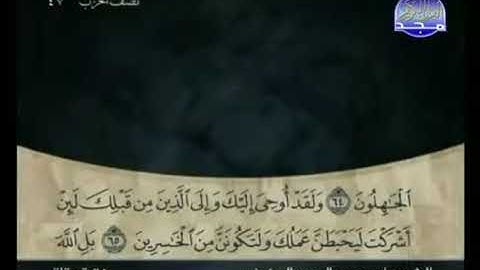 نصف الحزب ٤٧
مجد
الْجَاهِلُونَ ٦٤ وَلَقَدْ أُوحِيَ إِلَيْكَ وَإِلَى الَّذِينَ مِن قَبْلِكَ لَئِنْ
أَشْرَكْتَ لَيَحْبَطَنَّ عَمَلُكَ وَلَتَكُونَنَّ مِنَ الْخَاسِرِينَ ٦٥ بَلِ اللَّهَ